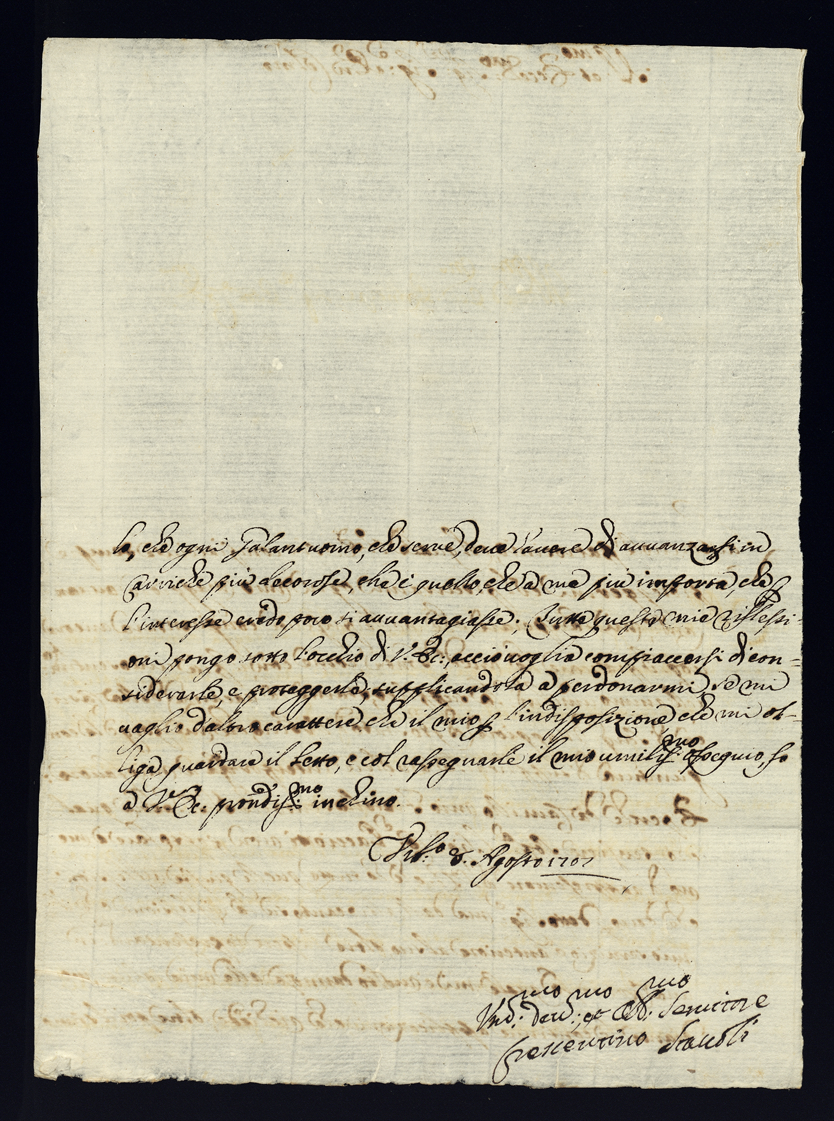 lo, che ogni Galantuomo, che serve, deve havere di avvanzarsi in
cariche più decorose, che è quello, che à me più importa, che
l'interesse credo poco si avvantagiasse; Tutte queste mie riflessi-
oni pongo sotto l'occhio di V. Ec: acciò voglia compiacersi di con-
siderarle, e proteggerle, supplicandola à perdonarmi, se mi
vaglio d'altro carattere che il mio p l'indisposizione che mi ob-
liga guardare il letto, e col rassegnarle il mio umiliss:mo ossequio, fo
à V. Ec: profondiss:mo inchino.
8. Agosto 1707
Um:mo dev:mo et Obb:mo Servitore
Crescentino Scavoli